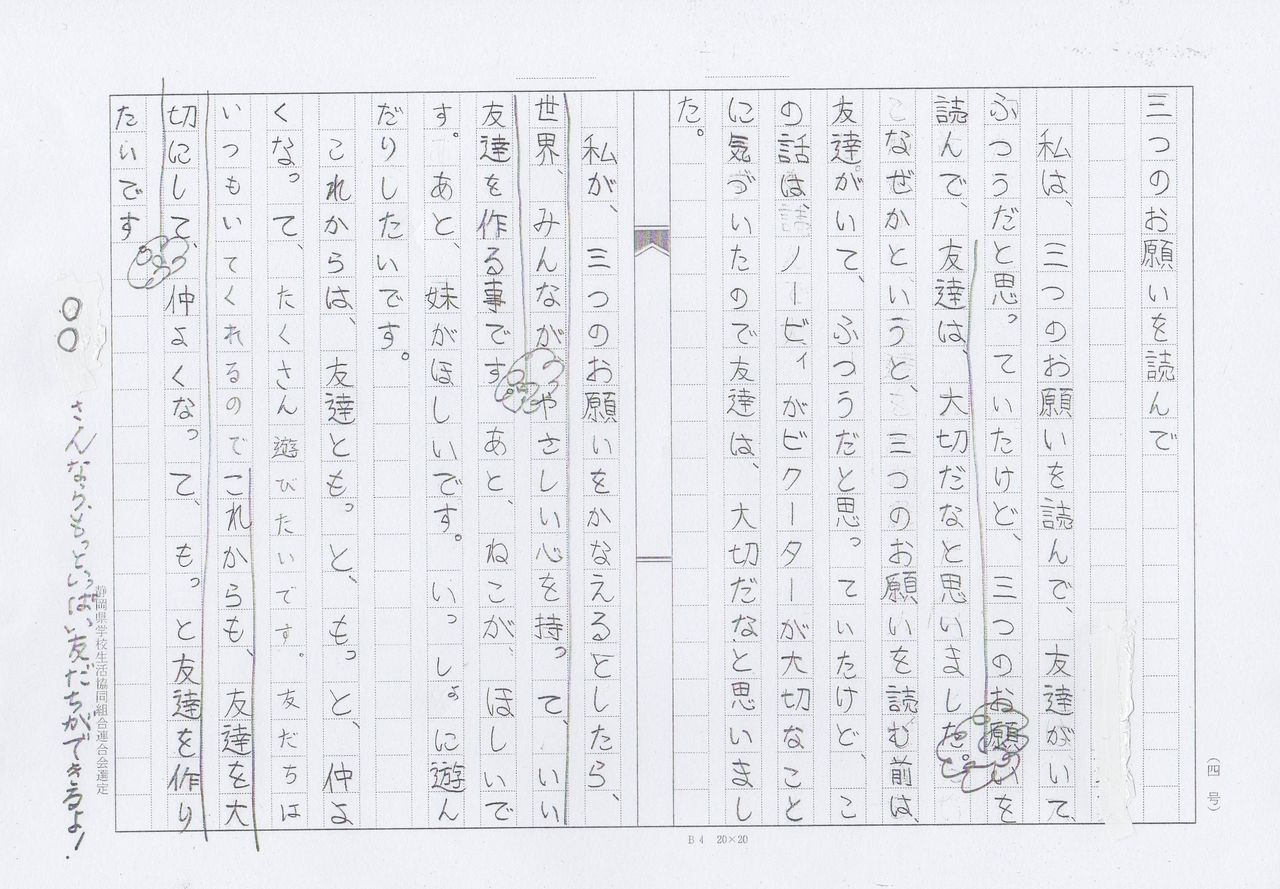 三つのお願いを読んで
私は、三つのお願いを読んで、友達がいて、
ふつうだと思っていたけど、三つのお願いを
読んで、友達は、大切だなと思いました。
なぜかというと、三つのお願いを読む前は、
友達がいて、ふつうだと思っていたけど、こ
の話は、ノービィがビクターが大切なこと
に気づいたので友達は、大切だなと思いまし
た。
私が、三つのお願いをかなえるとしたら、
世界、みんながやさしい心を持って、いい
友達を作る事です。あと、ねこが、ほしいで
す。あと、妹がほしいです。いっしょに遊ん
だりしたいです。
これからは、友達ともっと、もっと、仲よ
くなって、たくさん遊びたいです。友だちは
いつもいてくれるのでこれからも、友達を大
切にして、仲よくなって、もっと友達を作り
たいです。
○○さんなら、もっといっぱい友だちができるよ!
静岡県学校生活協同組合連合会選定
(四号)
B4 20×20